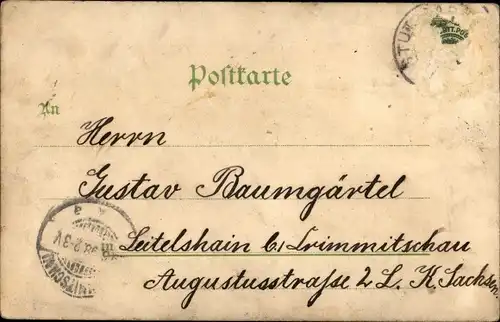 Postkarte
An
Herrn
Gustav Baumgärtel
Leitelshain b/ Crimmitschau
Augustusstraße 2 L. K. Sachsen